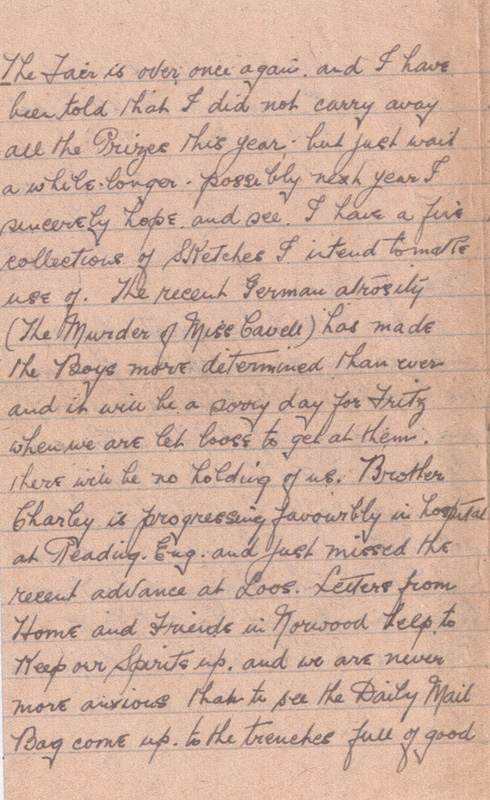 The Fair is over once again. and I have
been told that I did not carry away
all the Prizes this year - but just wait
a while-longer - possibly next year I
sincerely hope. and see. I have a fine
collections of Sketches I intend to make
use of. The recent German atrosity
(The Murder of Miss Cavell) has made
the Boys more determined than ever
and it will be a sorry day for Fritz
when we are let loose to get at them.
there will be no holding of us. Brother
Charley is progressing favourbly in hospital
at Reading. Eng. and just missed the
recent advance at Loos. Letters from
Home and Friends in Norwood help to
Keep our Spirits up. and we are never
more anxious than to see the Daily Mail
Bag come up. to the trenches full of good